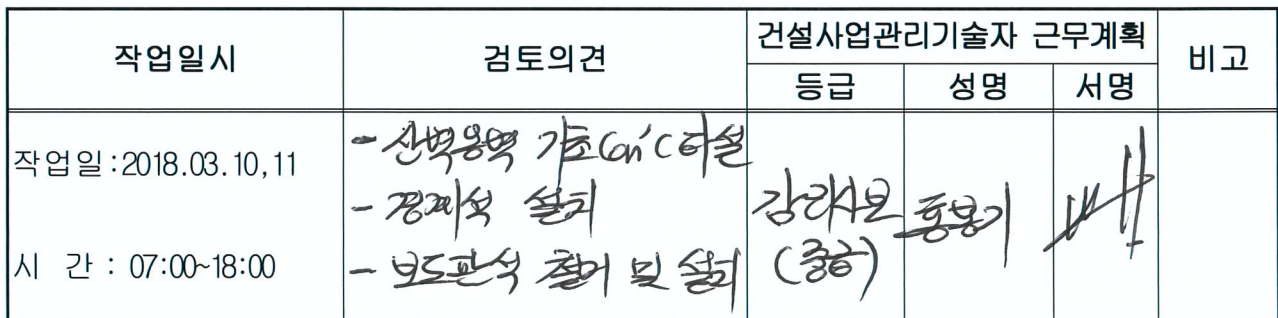 작업일시 검토의견 건설사업관리기술자 근무계획 비고
등급 성명 서명
작업일:2018.03.10,11
시 간 : 07:00~18:00
- 산벽옹벽 기초Con'c타설
- 경계석 설치
- 보도판석 철거 및 설치
감리사보
(중급)
홍봉기